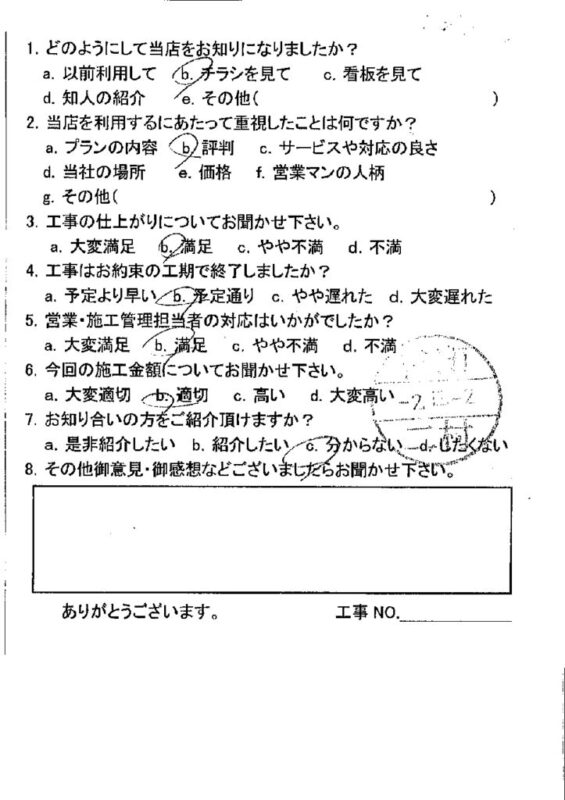 1. どのようにして当店をお知りになりましたか?
a. 以前利用して b. チラシを見て c. 看板を見て
d. 知人の紹介 e. その他( )
2. 当店を利用するにあたって重視したことは何ですか?
a. プランの内容 b. 評判 c. サービスや対応の良さ
d. 当社の場所 e. 価格 f. 営業マンの人柄
g. その他( )
3. 工事の仕上がりについてお聞かせ下さい。
a. 大変満足 b. 満足 c. やや不満 d. 不満
4. 工事はお約束の工期で終了しましたか?
a. 予定より早い b. 予定通り c. やや遅れた d. 大変遅れた
5. 営業・施工管理担当者の対応はいかがでしたか?
a. 大変満足 b. 満足 c. やや不満 d. 不満
6. 今回の施工金額についてお聞かせ下さい。
a. 大変適切 b. 適切 c. 高い d. 大変高い
7. お知り合いの方をご紹介頂けますか?
a. 是非紹介したい b. 紹介したい c. 分からない d. したくない
8. その他御意見・御感想などございましたらお聞かせ下さい。
ありがとうございます。 工事 NO.